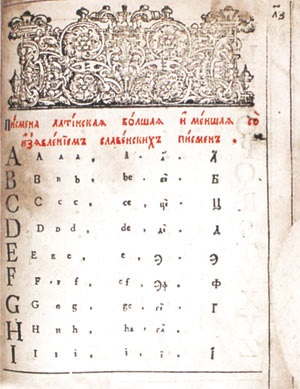 ҃гі
Пи́смена лати́нская бо́лшая и҆ ме́ншая со
и҆з̾явле́нїемъ славе́нскихъ пи́смен .
A A a a , a . а҆ . А҆
B B b b , be . бе . Б
C C c c , ce . це . Ц
D D d d , de . де . Д
E E e e , e . Э . Э
F F f f , ef . Эф . Ф
G G g g , ge . ге . Г
H H h h , ha . га .
I I i i , i . ї . Ї